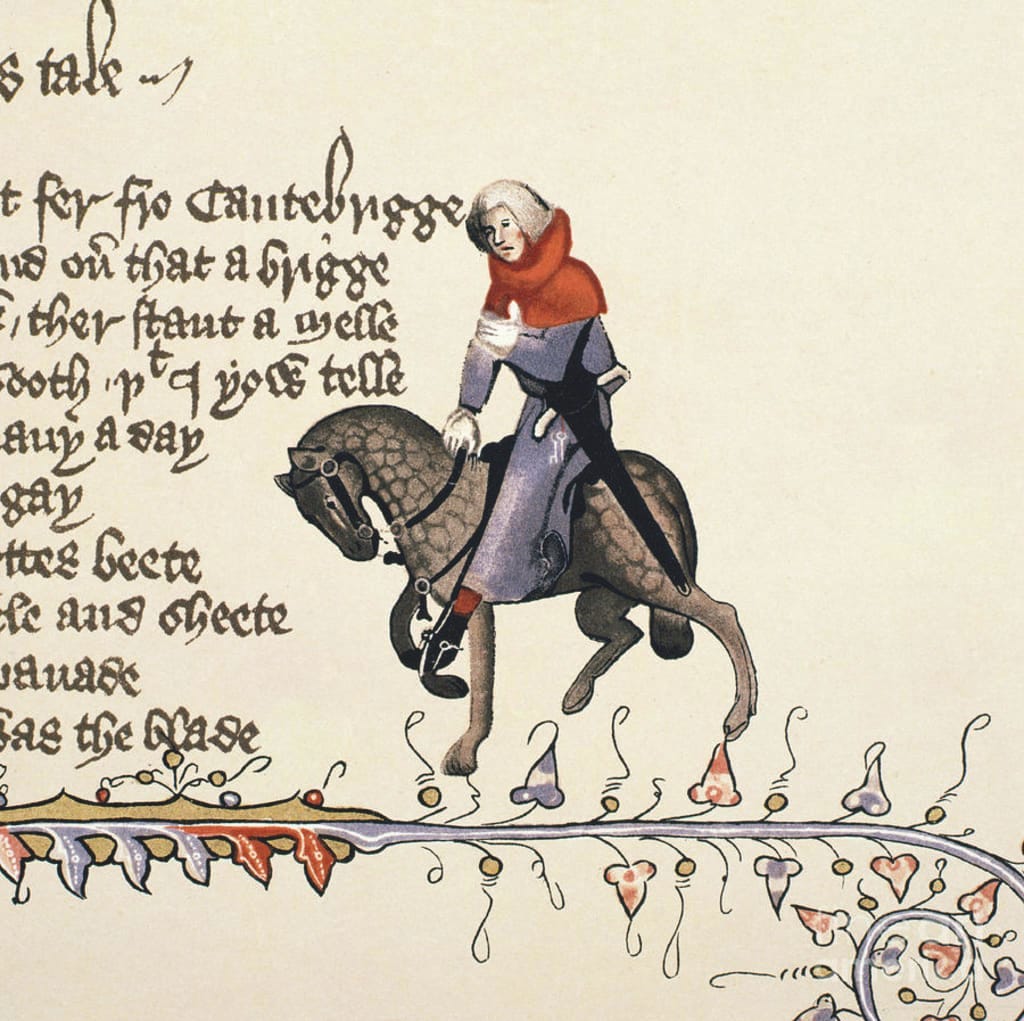 s tale
t fer fro Cantebrigge
nd oũ that a brigge
, ther stant a Melle
sooth, pᵗ I yow telle
any a day
gay
ttes beete
tle and sheete
panade
was the blade